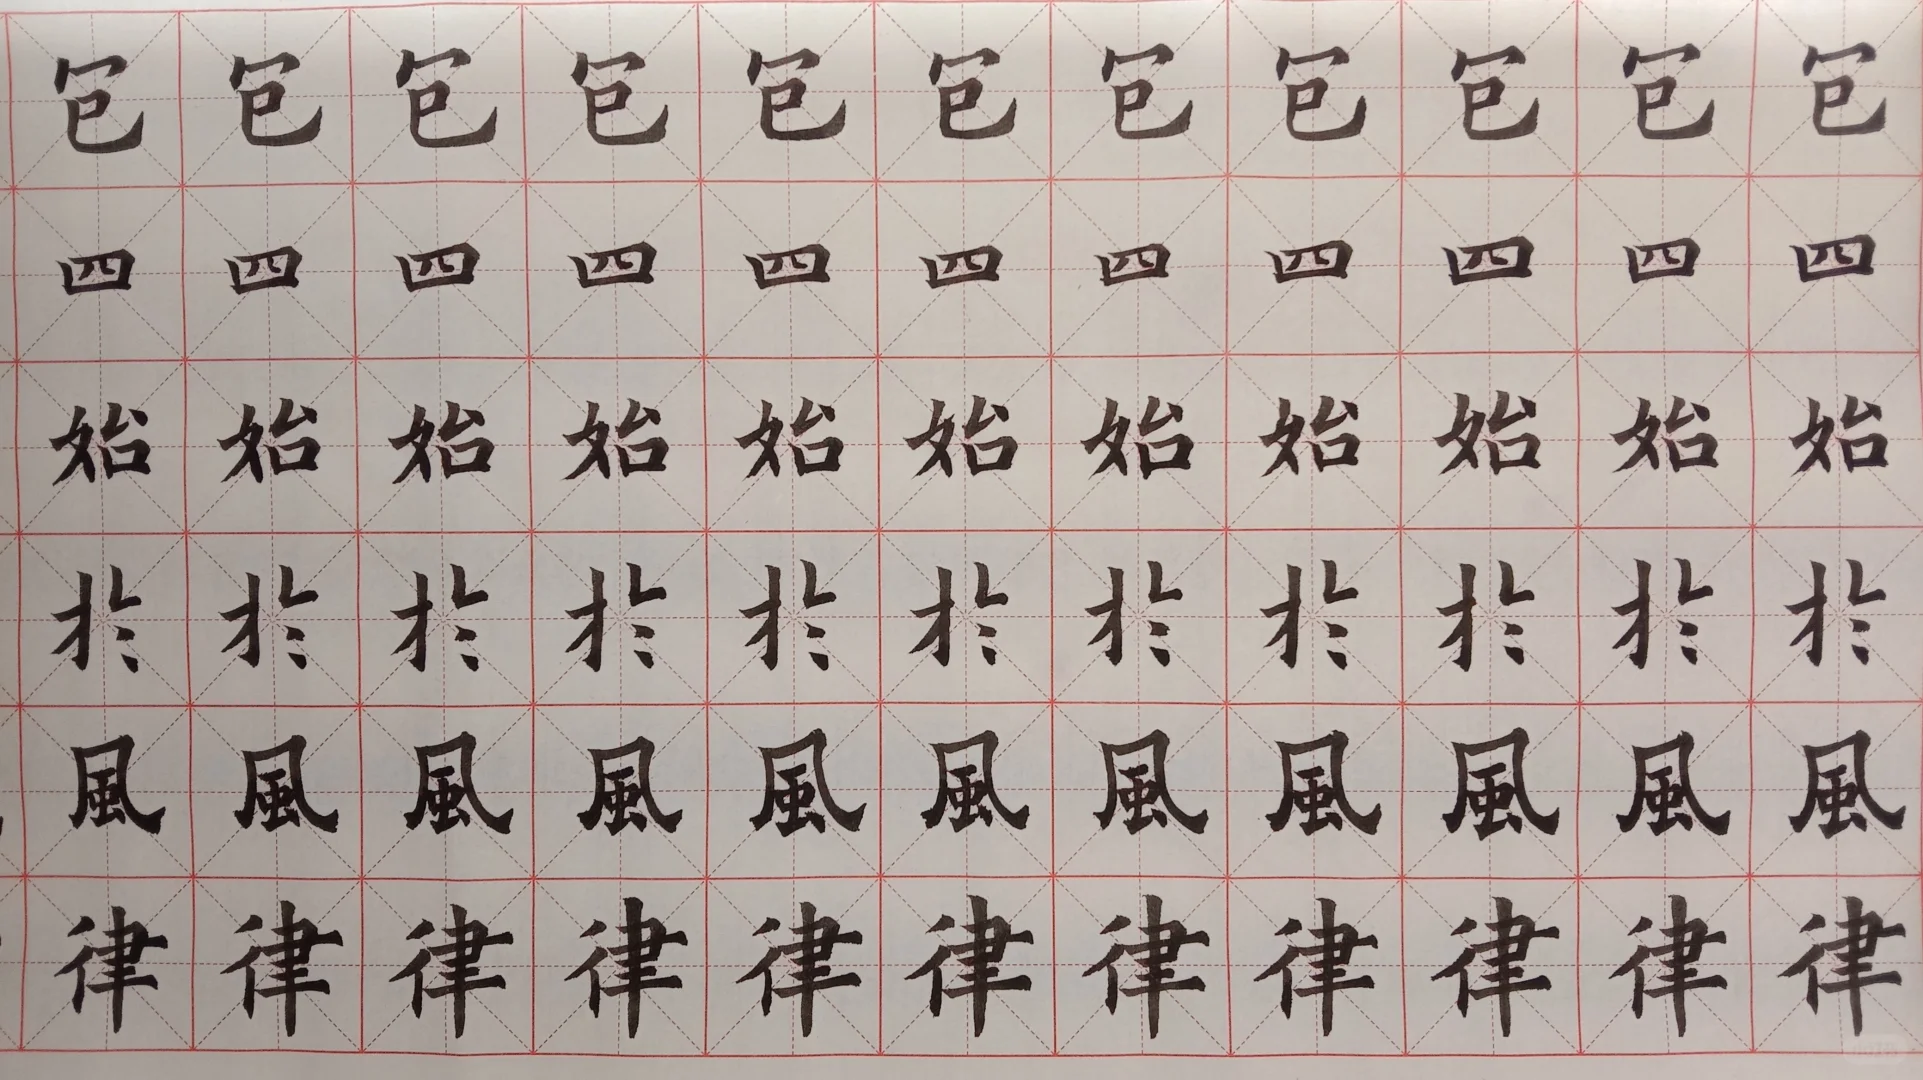 包包包包包包包包包包包
四四四四四四四四四四四
始始始始始始始始始始始
於於於於於於於於於於於
風風風風風風風風風風風
律律律律律律律律律律律